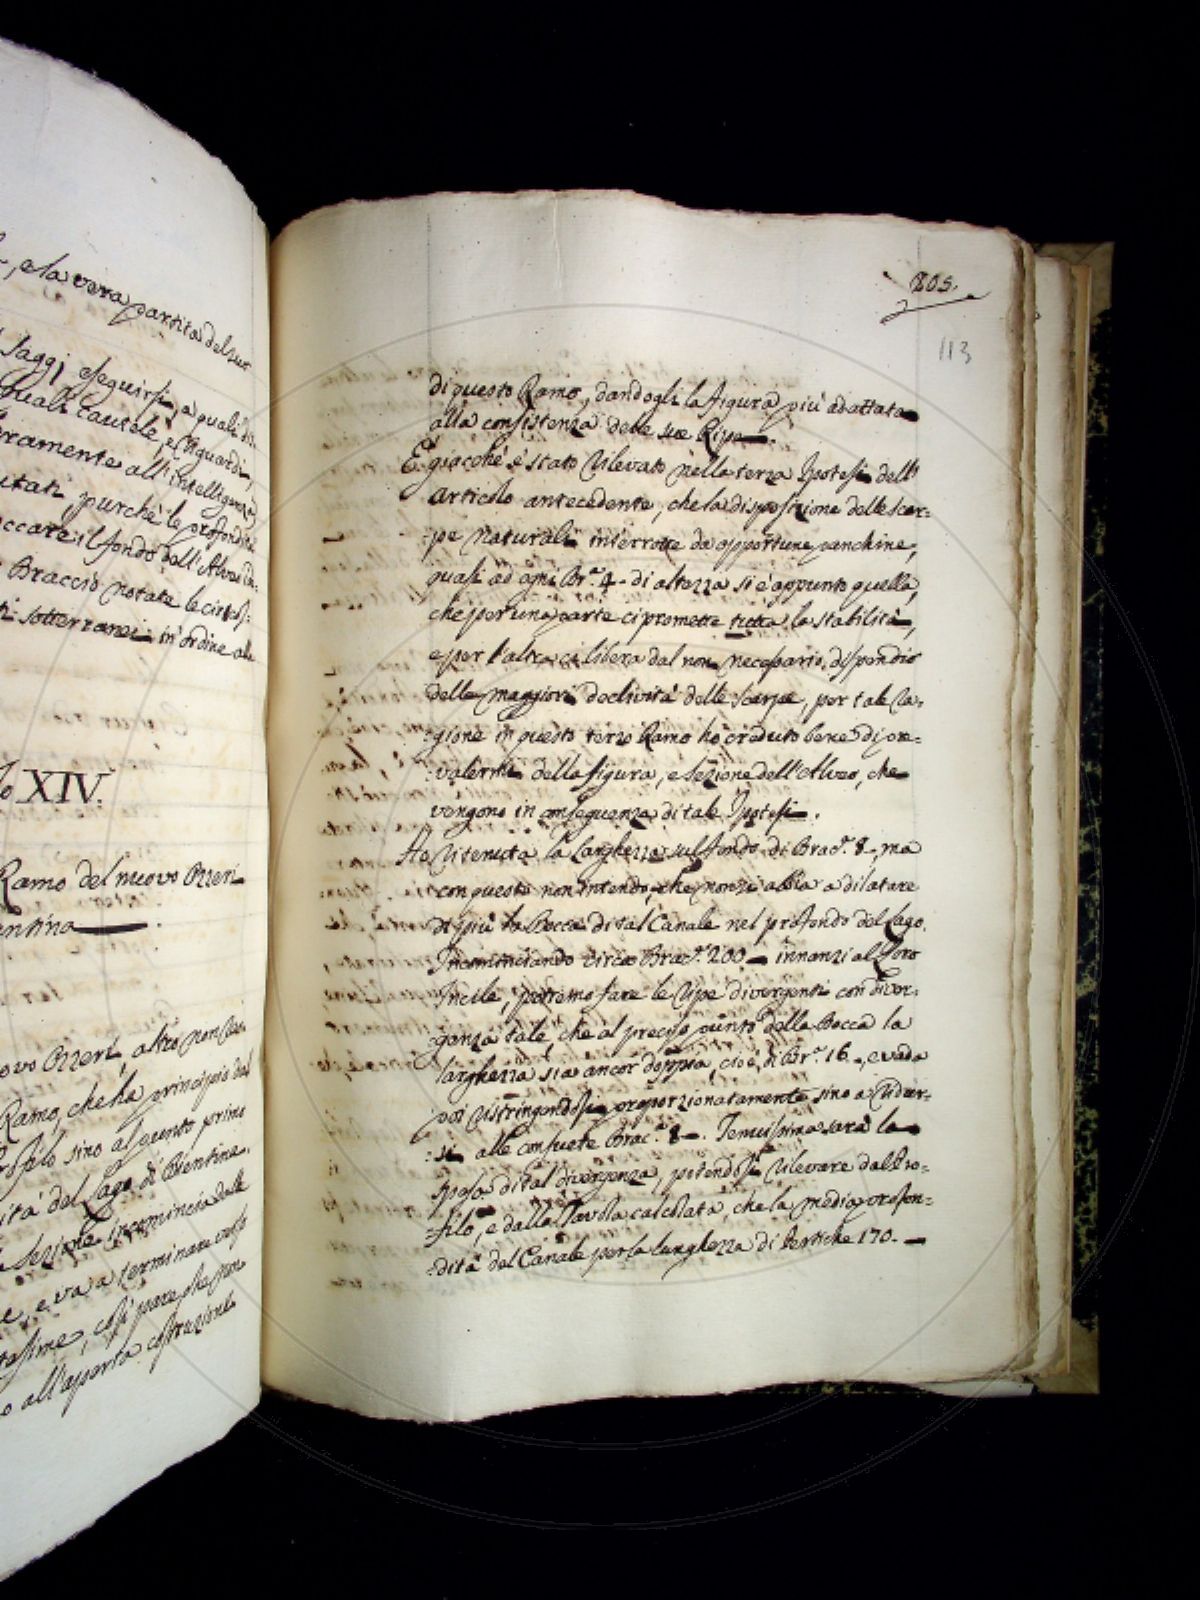 , e la vera partita del suo
Saggi eseguirsi, a quali di-
quali cautele, e riguardi,
eramente all'intelligenza
utati, purchè le profondità
ccare il fondo dall'Alveo
Braccio notate le circos-
ti sotterranei in ordine alla
lo XIV.
Ramo del nuovo Ozzeri
entina
ovo Ozzeri, altro non
Ramo, che ha principio dal
Profilo sino al punto primo
ità del Lago di Bientina.
Sezione incomincia dalle
e, e va a terminare
tesime, così pare che
o all'aperta costruzione
205.
113
di questo Ramo, dandogli la figura più adattata
alla consistenza delle sue Ripe.
E giacchè è stato rilevato nella terza Ipotesi dell'
Articolo antecedente, che la disposizione delle Scar-
-pe naturali interrotte da opportune panchine,
quasi ad ogni Br.ª 4. di altezza si è appunto quella,
che per una parte ci promette tutta la stabilità,
e per l'altra ci libera dal non necessario dispendio
delle maggiori declività delle Scarpe, per tale ra-
-gione in questo terzo Ramo ho creduto bene di pre-
-valermi della figura, e Sezione dell'Alveo, che
vengono in conseguenza di tale Ipotesi.
Ho ritenuta la larghezza sul fondo di Brac.ª 8, ma
con questo non intendo, che non si abbia a dilatare
di più la Bocca di tal Canale nel profondo del Lago.
Incominciando circa Brac.ª 200 innanzi al Loro
Incile, potremo fare le ripe divergenti con diver-
-genza tale, che al preciso punto della Bocca la
larghezza sia ancor doppia, cioè di Br.ª 16., e vada
poi ristringendosi proporzionatamente sino a ridur-
-si alle consuete Brac.ª 8. Tenuissima sarà la
spesa di tal divergenza, potendosi rilevare dal Pro-
-filo, e dalla Tavola calcolata, che la media profon-
-dità del Canale per la lunghezza di Pertiche 170.